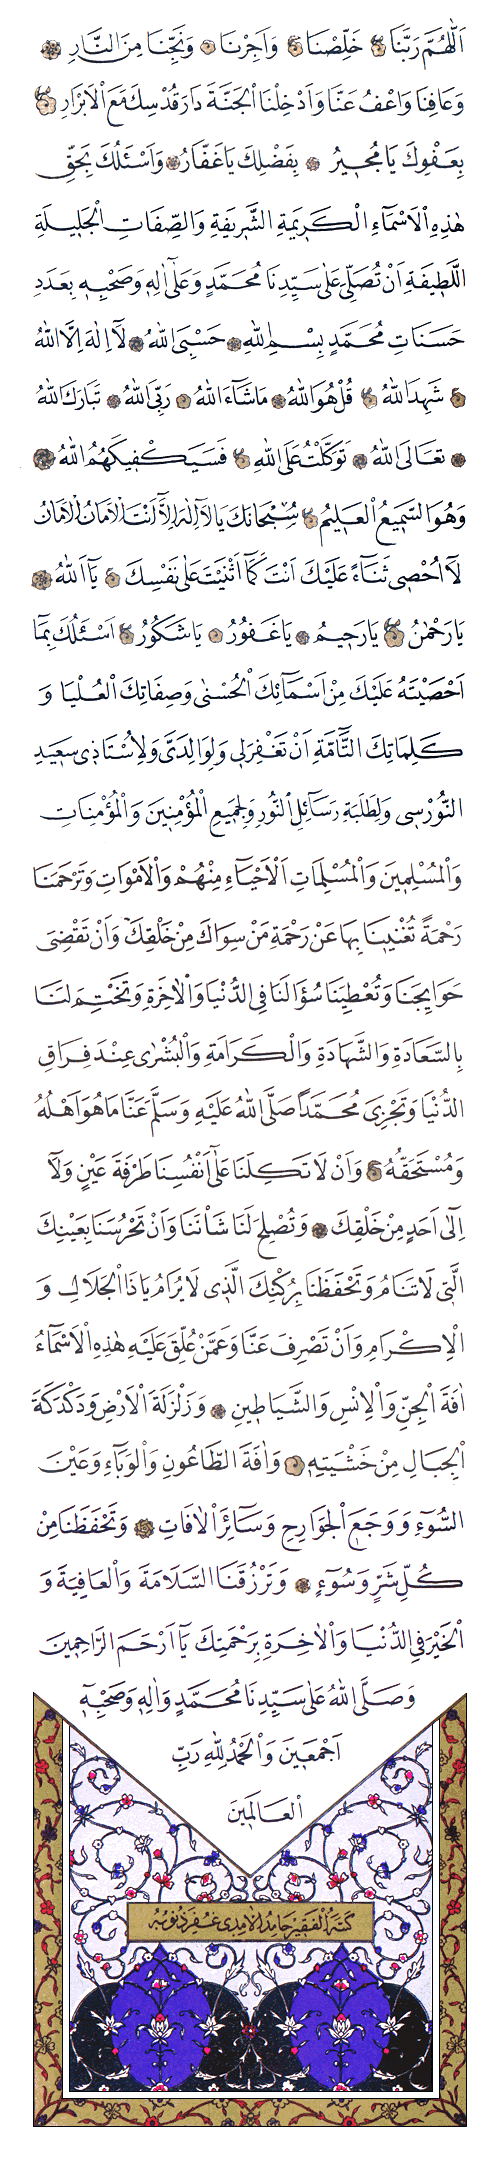 اَللّٰهُمَّ رَبَّنَا خَلِّصْنَا وَاَجِرْنَا وَنَجِّنَا مِنَ النَّارِ
وَعَافِنَا وَاعْفُ عَنَّا وَاَدْخِلْنَا الْجَنَّةَ دَارَ قُدْسِكَ مَعَ الْاَبْرَارِ
بِعَفْوِكَ يَا مُجِيرُ بِفَضْلِكَ يَا غَفَّارُ وَاَسْئَلُكَ بِحَقِّ
هٰذِهِ الْاَسْمَاءِ الْكَرِيمَةِ الشَّرِيفَةِ وَالصِّفَاتِ الْجَلِيلَةِ
اللَّطِيفَةِ اَنْ تُصَلِّيَ عَلٰى سَيِّدِنَا مُحَمَّدٍ وَعَلٰٓى اٰلِهِ وَصَحْبِهِ بِعَدَدِ
حَسَنَاتِ مُحَمَّدٍ بِسْمِ اللّٰهِ حَسْبِيَ اللّٰهُ لَٓا اِلٰهَ اِلَّا اللّٰهُ
شَهِدَ اللّٰهُ قُلْ هُوَ اللّٰهُ مَاشَٓاءَ اللّٰهُ رَبِّيَ اللّٰهُ تَبَارَكَ اللّٰهُ
تَعَالَى اللّٰهُ تَوَكَّلْتُ عَلَى اللّٰهِ فَسَيَكْفِيكَهُمُ اللّٰهُ
وَهُوَ السَّمِيعُ الْعَلِيمُ سُبْحَانَكَ يَا لَٓا اِلٰهَ اِلَّٓا اَنْتَ الْاَمَانُ الْاَمَانُ
لَٓا اُحْصِي ثَنَٓاءً عَلَيْكَ اَنْتَ كَمَٓا اَثْنَيْتَ عَلٰى نَفْسِكَ يَٓا اَللّٰهُ
يَا رَحْمٰنُ يَا رَحِيمُ يَا غَفُورُ يَا شَكُورُ اَسْئَلُكَ بِمَٓا
اَحْصَيْتَهُ عَلَيْكَ مِنْ اَسْمَٓائِكَ الْحُسْنٰى وَصِفَاتِكَ الْعُلْيَا وَ
كَلِمَاتِكَ التَّٓامَّةِ اَنْ تَغْفِرَلِي وَلِوَالِدَيَّ وَلِاُسْتَاذِي سَعِيدِ
النُّورْسِي وَلِطَلَبَةِ رَسَٓائِلِ النُّورِ وَلِجَمِيعِ الْمُؤْمِنِينَ وَالْمُؤْمِنَاتِ
وَالْمُسْلِمِينَ وَالْمُسْلِمَاتِ اَلْاَحْيَٓاءِ مِنْهُمْ وَالْاَمْوَاتِ وَتَرْحَمَنَا
رَحْمَةً تُغْنِينَا بِهَا عَنْ رَحْمَةِ مَنْ سِوَاكَ مِنْ خَلْقِكَ وَاَنْ تَقْضِيَ
حَوَايِجَنَا وَتُعْطِيَنَا سُؤَالَنَا فِي الدُّنْيَا وَالْاٰخِرَةِ وَتَخْتِمَ لَنَا
بِالسَّعَادَةِ وَالشَّهَادَةِ وَالْكَرَامَةِ وَالْبُشْرٰى عِنْدَ فِرَاقِ
الدُّنْيَا وَتَجْزِيَ مُحَمَّدًا صَلَّى اللّٰهُ عَلَيْهِ وَسَلَّمَ عَنَّا مَا هُوَ اَهْلُهُ
وَمُسْتَحَقُّهُ وَاَنْ لَا تَكِلَنَا عَلٰٓى اَنْفُسِنَا طَرْفَةَ عَيْنٍ وَلَٓا
اِلٰٓى اَحَدٍ مِنْ خَلْقِكَ وَتُصْلِحَ لَنَا شَأْنَنَا وَاَنْ تَحْرُسَنَا بِعَيْنِكَ
الَّتِي لَا تَنَامُ وَتَحْفَظَنَا بِرُكْنِكَ الَّذِي لَا يُرَامُ يَا ذَا الْجَلَالِ وَ
الْاِكْرَامِ وَاَنْ تَصْرِفَ عَنَّا وَعَمَّنْ عُلِّقَ عَلَيْهِ هٰذِهِ الْاَسْمَٓاءُ
اٰفَةَ الْجِنِّ وَالْاِنْسِ وَالشَّيَاطِينِ وَزَلْزَلَةَ الْاَرْضِ وَدَكْدَكَةَ
الْجِبَالِ مِنْ خَشْيَتِهِ وَاٰفَةَ الطَّاعُونِ وَالْوَبَٓاءِ وَعَيْنَ
السُّوٓءِ وَوَجَعَ الْجَوَارِحِ وَسَٓائِرَ الْاٰفَاتِ وَتَحْفَظَنَا مِنْ
كُلِّ شَرٍّ وَسُوٓءٍ وَتَرْزُقَنَا السَّلَامَةَ وَالْعَافِيَةَ وَ
الْخَيْرَ فِي الدُّنْيَا وَالْاٰخِرَةِ بِرَحْمَتِكَ يَٓا اَرْحَمَ الرَّاحِمِينَ
وَصَلَّى اللّٰهُ عَلٰى سَيِّدِنَا مُحَمَّدٍ وَاٰلِهِ وَصَحْبِهِ
اَجْمَعِينَ وَالْحَمْدُ لِلّٰهِ رَبِّ
الْعَالَمِينَ
كتبه الفقير حامد الآمدي غفر ذنوبه